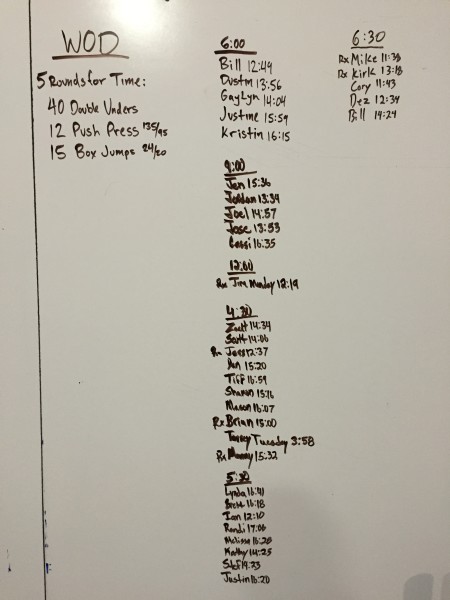 WOD
5 Rounds for Time:
40 Double Unders
12 Push Press 135/95
15 Box Jumps 24/20
6:00
Bill 12:49
Dustin 13:56
GayLyn 14:04
Justine 15:59
Kristin 16:15
9:00
Jen 15:36
Jordan 13:34
Joel 14:57
Jose 13:53
Cassi 16:35
12:00
Rx Jim Monday 12:19
4:30
Zach 14:34
Scott 14:06
Rx 12:37
15:20
Tiff 16:59
Sharon
Mason 16:07
Rx Brian 15:00
Tuesday 3:58
Rx Manny 15:32
5:30
Lynda 16:41
Brett 16:18
Ian 12:10
Randi 17:06
Melissa 16:28
Kathy 14:25
Stef 14:23
Justin 16:20
6:30
Rx Mike 11:38
Rx Kirk 13:18
Cory 11:43
Dez 12:34
Bill 14:24